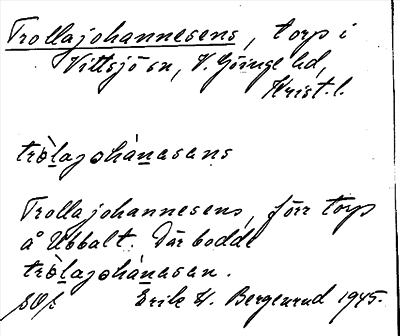 Trollajohannesens, torp i
Vittsjö sn, V. Göinge hd,
Krist. l.
tròlajohánasens
Trollajohannesens, förr torp
å Ubbalt. Där bodde
tròlajohánasan.
Erik H. Bergenrud 1945.